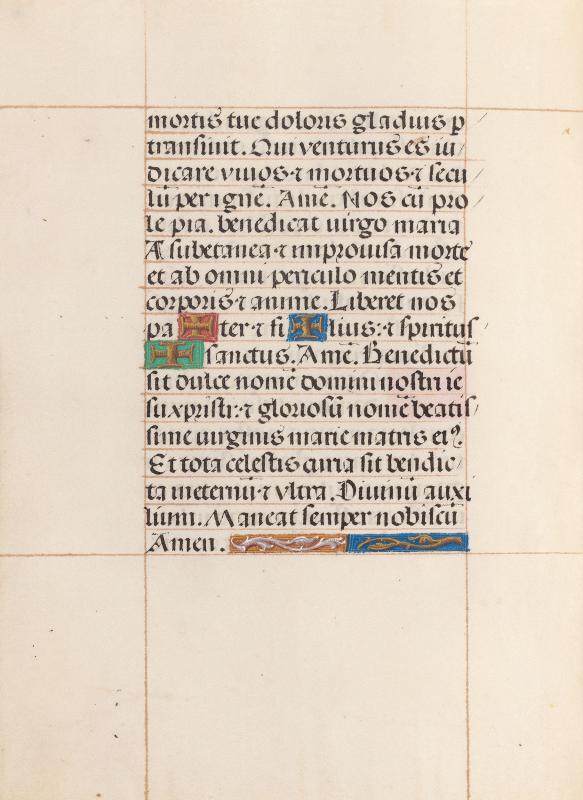 mortis tue doloris gladius p
transiuit. Qui venturus es iu/
dicare viuos ⁊ mortuos ⁊ secu
lū per ignē. Amē. Nos cū pro
le pia. benedicat uirgo maria
A subetanea ⁊ improuisa morte
et ab omni periculo mentis et
corporis ⁊ anime. Liberet nos
pa ✠ ter ⁊ fi ✠ lius: ⁊ spiritus
✠ sanctus. Amē. Benedictū
sit dulce nomē domini nostri ie
su xpristi: ⁊ gloriosū nomē beatis/
sime uirginis marie matris eiꝰ.
Et tota celestis curia sit bendic/
ta ineternū ⁊ vltra. Diuinū auxi
lium. Maneat semper nobiscū
Amen.